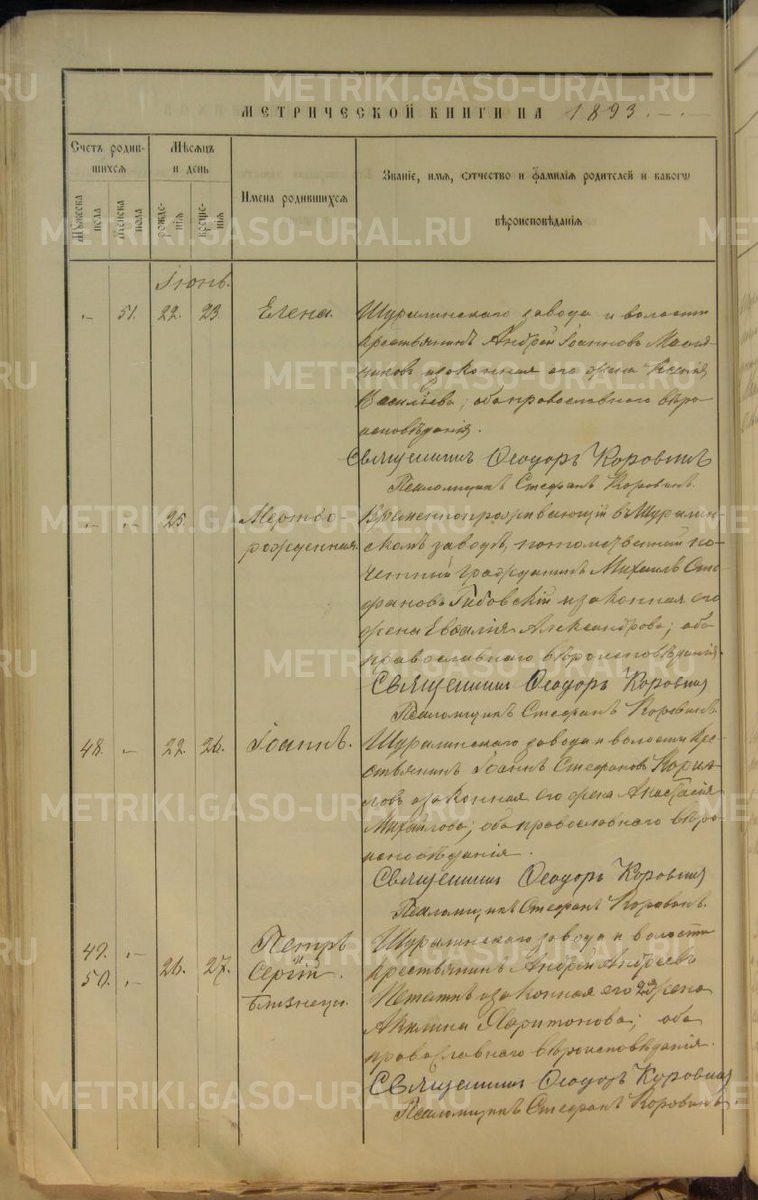 МЕТРИЧЕСКОЙ КНИГИ НА 1893.
Счетъ родив-
шихся
Мѣсяцъ
и день
Имена родившихся
Званіе, имя, отчество и фамилія родителей и какого
вѣроисповѣданія
Мужеска
пола
Женска
пола
рожде-
нія
креще-
нія
Іюнь.
51. 22. 23. Елена. Шуралинскаго завода и волости
крестьянинъ Андрей Іоанновъ
и законная его жена
Василіева; оба православнаго вѣро-
исповѣданія.
Священникъ Ѳеодоръ Коровинъ
Псаломщикъ Стефанъ Коровинъ.
25. Мертво- Временнопроживающій въ Шуралин-
рожденная. скомъ заводѣ, потомственный по-
четный гражданинъ Михаилъ Сте-
фановъ и законная его
жена Евѳалія Александрова; оба
православнаго вѣроисповѣданія.
Священникъ Ѳеодоръ Коровинъ
Псаломщикъ Стефанъ Коровинъ.
48. 22. 26. Іоаннъ. Шуралинскаго завода и волости кре-
стьянинъ Іоаннъ Стефановъ Корми-
ловъ и законная его жена Анастасія
Михайлова; оба православнаго вѣро-
исповѣданія.
Священникъ Ѳеодоръ Коровинъ
Псаломщикъ Стефанъ Коровинъ.
49. Петръ Шуралинскаго завода и волости
50. 26. 27. и Сергій крестьянинъ Андрей Андреевъ
близнецы. и законная его 2я жена
Акилина Харитонова; оба
православнаго вѣроисповѣданія.
Священникъ Ѳеодоръ Коровинъ
Псаломщикъ Стефанъ Коровинъ.
METRIKI.GASO-URAL.RU